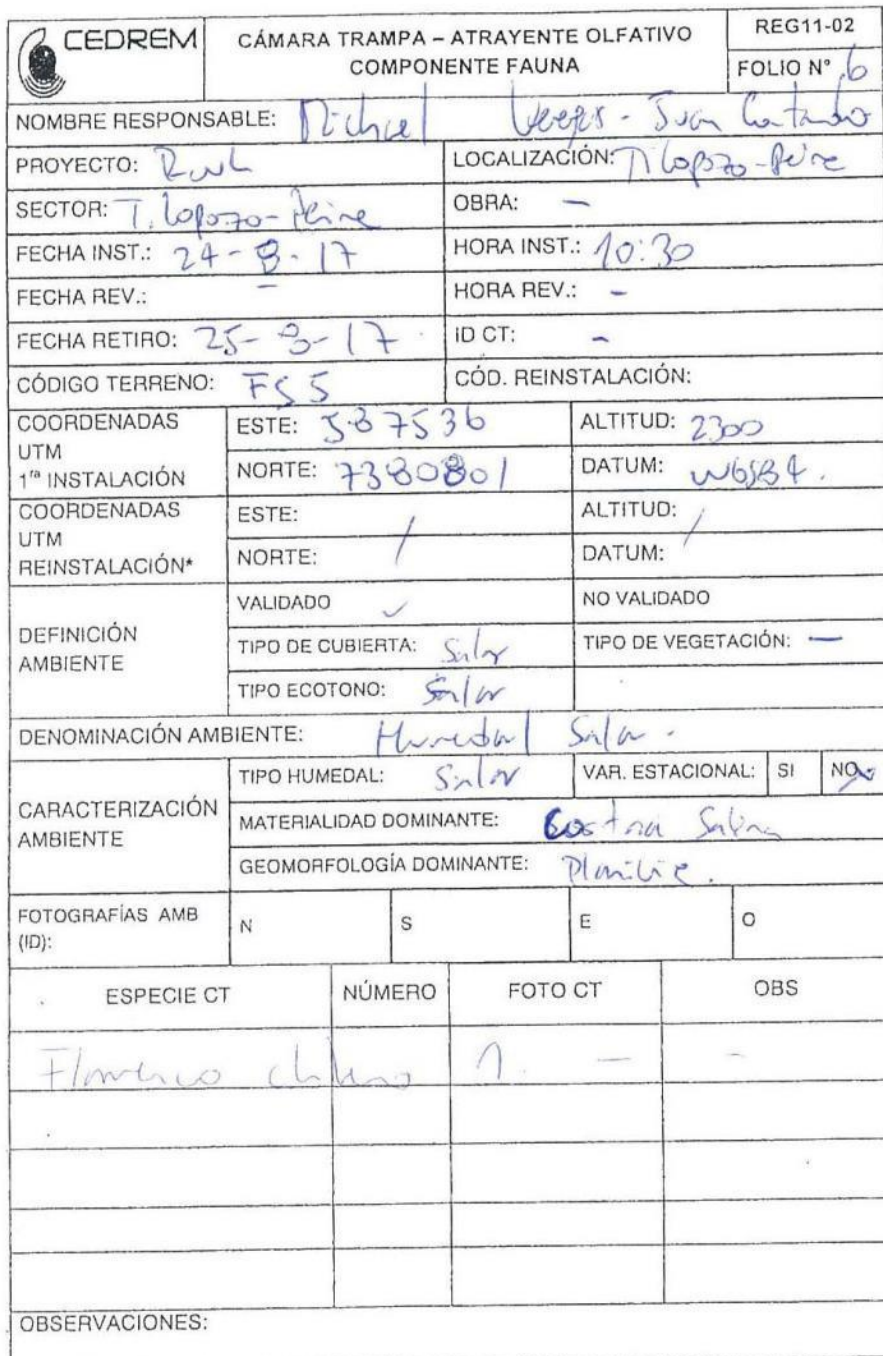 CEDREM
CÁMARA TRAMPA – ATRAYENTE OLFATIVO
COMPONENTE FAUNA
REG11-02
FOLIO N° 6
NOMBRE RESPONSABLE: Michael - Juan
PROYECTO:
LOCALIZACIÓN: Tilopozo-Peine
SECTOR: Tilopozo-Peine
OBRA: –
FECHA INST.: 24-8-17
HORA INST.: 10:30
FECHA REV.: –
HORA REV.: –
FECHA RETIRO: 25-8-17
ID CT: –
CÓDIGO TERRENO: FS5
CÓD. REINSTALACIÓN:
COORDENADAS
UTM
1ra INSTALACIÓN
ESTE: 587536
ALTITUD: 2300
NORTE: 7380801
DATUM: WGS84.
COORDENADAS
UTM
REINSTALACIÓN*
ESTE: /
ALTITUD: /
NORTE:
DATUM:
DEFINICIÓN
AMBIENTE
VALIDADO ✓
NO VALIDADO
TIPO DE CUBIERTA: Salar
TIPO DE VEGETACIÓN: –
TIPO ECOTONO: Salar
DENOMINACIÓN AMBIENTE: Humedal Salar.
CARACTERIZACIÓN
AMBIENTE
TIPO HUMEDAL: Salar
VAR. ESTACIONAL: SI NO
MATERIALIDAD DOMINANTE: Costra Salina
GEOMORFOLOGÍA DOMINANTE: Planicie.
FOTOGRAFÍAS AMB
(ID):
N S E O
ESPECIE CT NÚMERO FOTO CT OBS
Flamenco chileno 1. – –
OBSERVACIONES: